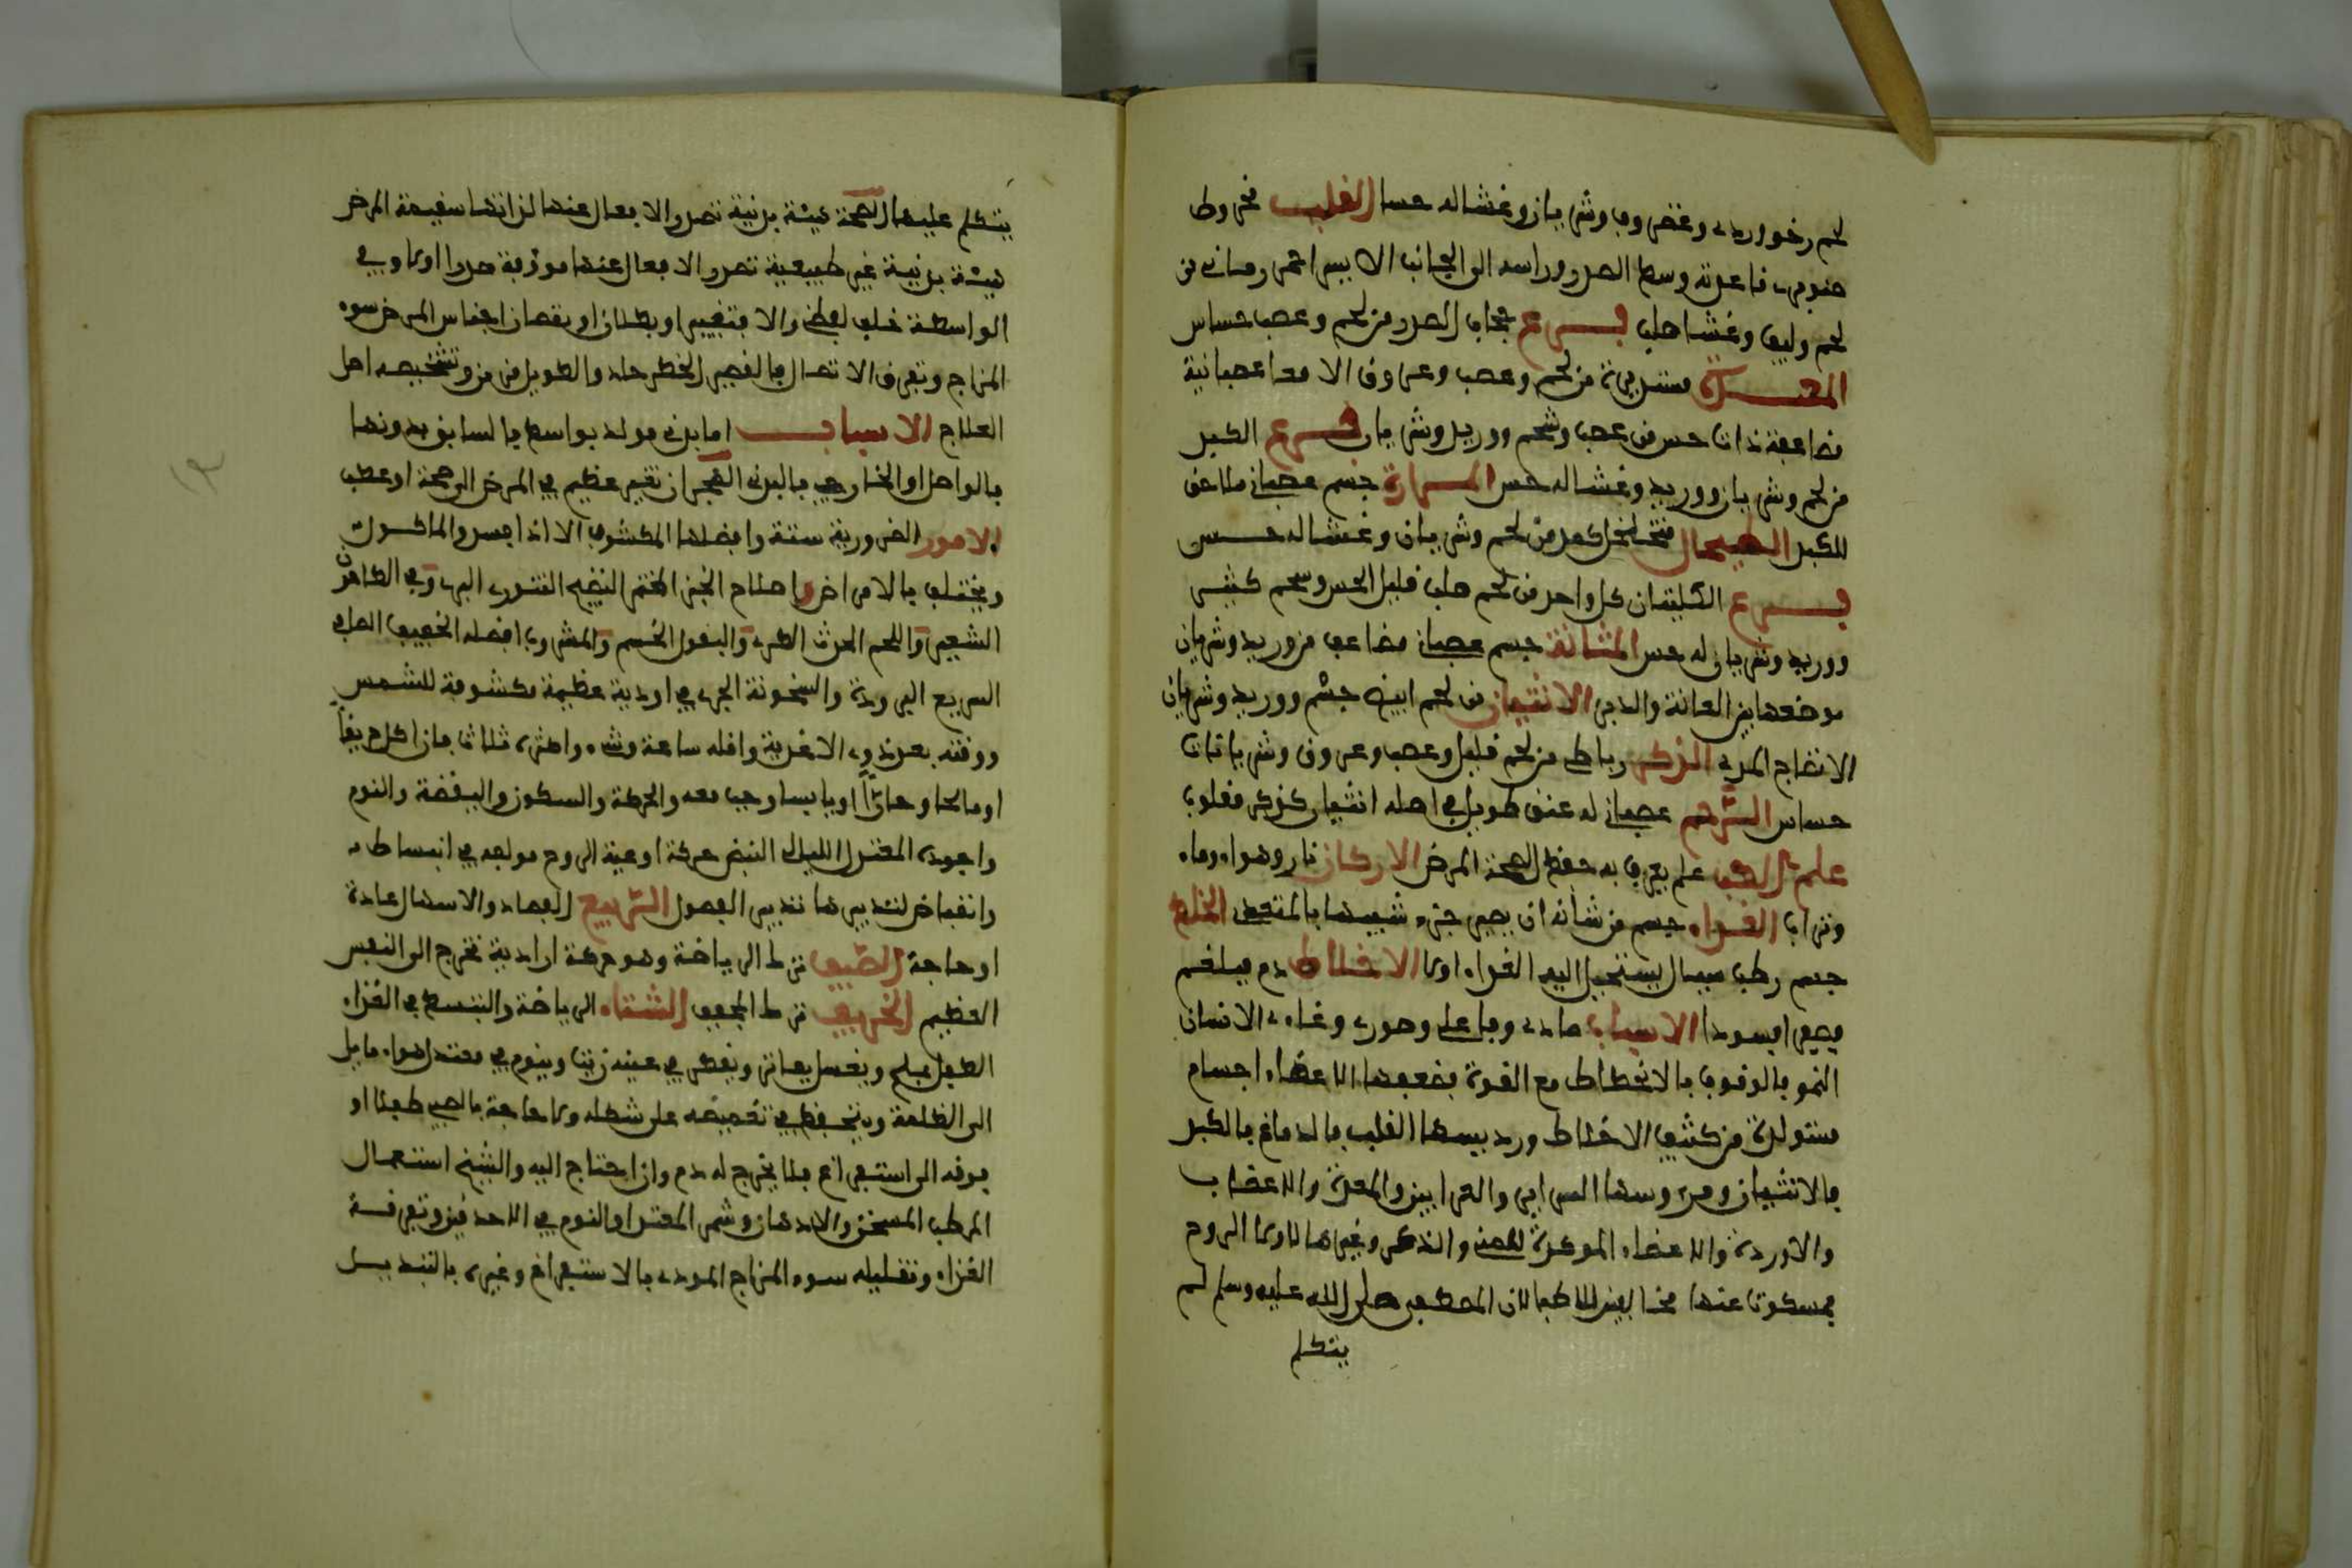 لحم رخو وردي وغضروف وشريان وغشا له حسا القلب مخروط
صنوبري قاعدته وسط الصدر وراسه الى الجانب الايسر احمر رماني من
لحم وليف وغشا صلب فرع حجاب الصدر من لحم وعصب حساس
المعدة مستديرة من لحم وعصب وعروق الامعا عصبانية
مضاعفة ذات حس من عصب وشحم ووريد وشريان فرع الكبد
من لحم وشريان ووريد وغشا له حس المرارة جسم عصباني ملاصق
للكبد الطحال متخلخل كمد من لحم وشريان وغشا له حس
فرع الكليتان كل واحد من لحم صلب قليل الحس وشحم كثير
ووريد وشريان له حس المثانة جسم عصباني مضاعف من وريد وشريان
موضعها بين العانة والدبر الانثيان من لحم ابيض دسم ووريد وشريان
لانضاج المني الذكر رباط من لحم قليل وعصب وعروق وشريانات
حساس الرحم عصباني له عنق طويل في اصله انثيان كذكر مقلوب
علم الطب علم يعرف به حفظ الصحة المرض الاركان نار وهواء وماء
وتراب الغذاء جسم من شانه ان يصير جزء شبيها بالمتغذي الخلط
جسم رطب سيال يستحيل اليه الغذاء اولا الاخلاط دم فبلغم
فصفرا فسودا الاسباب مادي وفاعلي وصوري وغاءي الاسنان
النمو فالوقوف فالانحطاط مع القوة فضعفها الاعضاء اجسام
متولدة من كثيف الاخلاط ورءيسها القلب فالدماغ فالكبد
فالانثيان ومرءوسها السرايين والعرا بين والمعدة والاعضاب
والاوردة والاعضاء الموءدة للمني والذكر وغيرها للاولى الروح
نمسكوت عنها مخالفين للاطبا لان المصطفى صلى الله عليه وسلم لم
يتكلم
يتكلم عليها الصحة هيئة بدنية تصدر الافعال عنها لذاتها سليمة المرض
هيئة بدنية غير طبيعية تصدر الافعال عنها موءوفة صدورا اوليا وفي
الواسطة خلف لفظي والافة تغيير او بطلان او نقصان اجناس المرض سوء
المزاج وتفرق الاتصال فالقصير الخطر حاد والطويل مزمن وتشخيصه اصل
العلاج الاسباب اما بدني مولد بواسطة فالسابق بدونها
فالواصل او الخارجي فالبدني البحران تغير عظيم في المرض الى صحة او عطب
الامور الضرورية ستة وافضلها المكشوف الا اذا فسد والماكول
ويختلف فالامراض واصلاح الخبز المختمر النضيج التنوري البر وفي
الشعير واللحم الحدث الطري والبقول الخس والمشروب افضله الخفيف الصافي
السريع البرودة والسخونة الجري في اودية عظيمة مكشوفة للشمس
ووقته بعد ذوب الاغذية واقله ساعة وشيء واكثره ثلاثا فان اكل حريفا
او مالحا او حارا او يابسا وجب معه والحركة والسكون واليقضة والنوم
واجوده المعتدل الليلي النبض حركة اوعية الروح مولفه في انبساط
وانقباض لتدبيرها تدبير الفصول الربيع الفصاد والاسهال عادة
او حاجة الصيف ترك الرياضة وهو حركة ارادية تخرج الى النفس
العظيم الخريف ترك المجفف الشتاء الرياضة والتبسط في الغذاء
الطفل يملح ويغسل بفاتر ويقطر في عينه زيتا وينوم في معتدل هواء مايل
الى الظلمة ويتحفظ في تقميطه على شكله ولا حاجة
يوقه الى استفراغ فلا يخرج له دم وان احتاج اليه والشيخ استعمال
المرطب المسخن والادهان وشم المعتدل والنوم في اللاحدين وتفرقة
الغذاء وتقليله سوء المزاج المودي بالاستفراغ وغيره بالتبديل